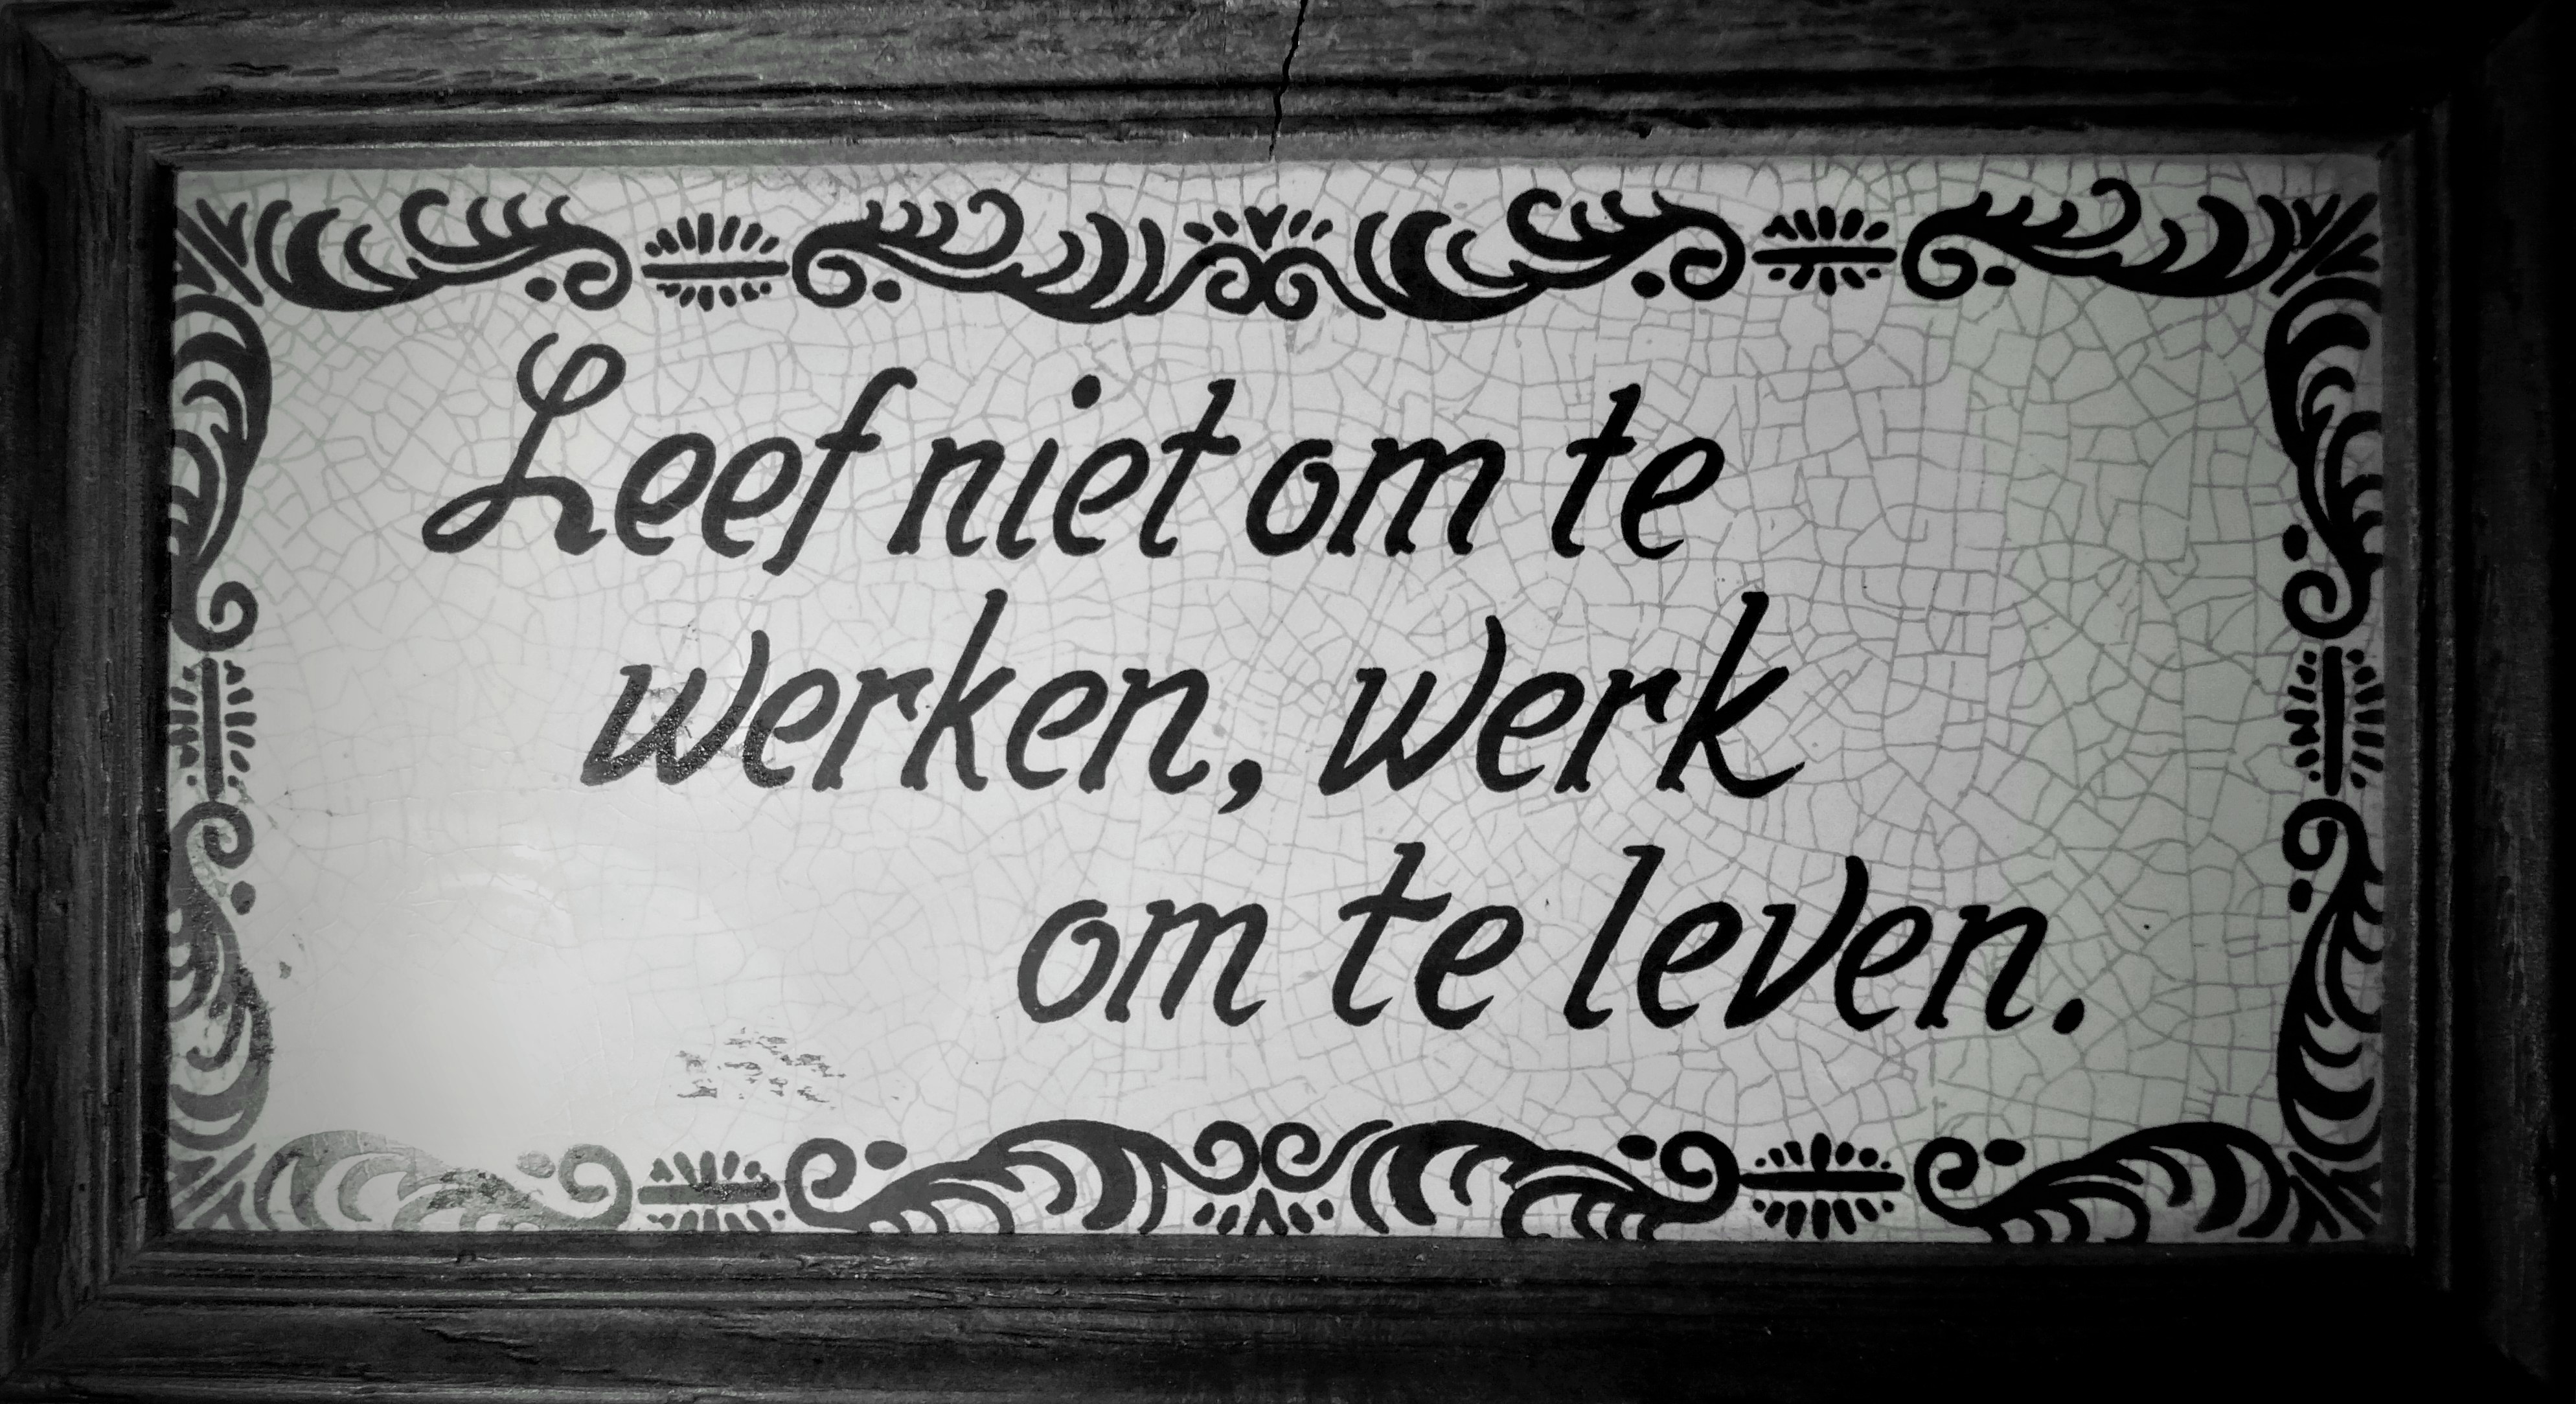 Leef niet om te
werken, werk
om te leven.